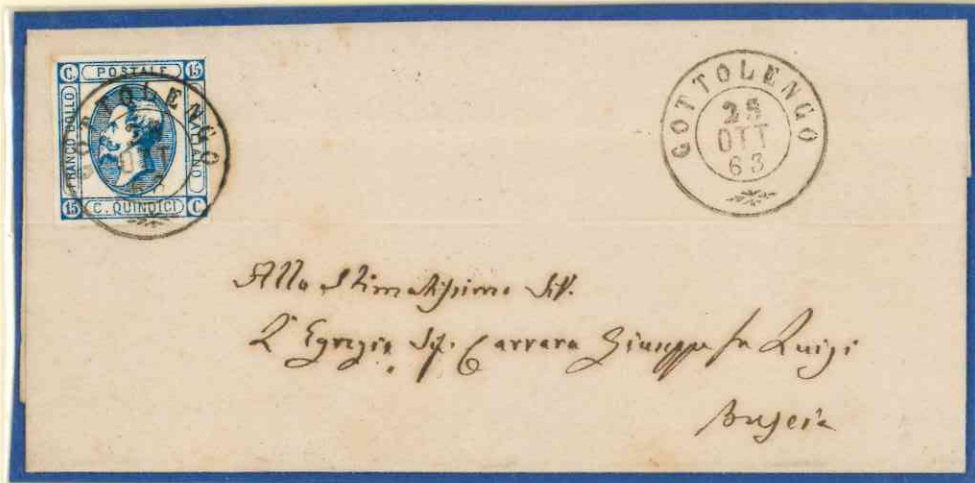 C. POSTALE 15
FRANCO BOLLO
ITALIANO
15 C. QUINDICI C.
GOTTOLENGO
OTT
63
GOTTOLENGO
25
OTT
63
Allo Stimatissimo Sig.
L'Egregio Sig. Carrara Giuseppe fu Luigi
Brescia